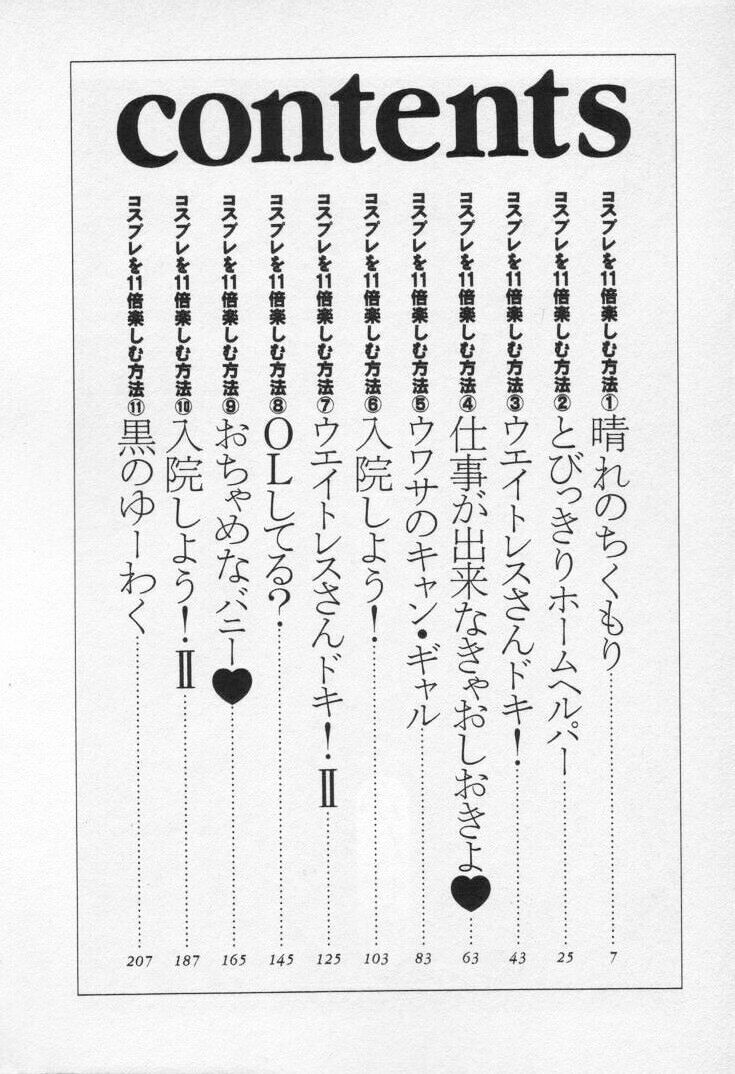 contents
コスプレを11倍楽しむ方法①晴れのちくもり……7
コスプレを11倍楽しむ方法②とびっきりホームヘルパー……25
コスプレを11倍楽しむ方法③ウエイトレスさんドキ！……43
コスプレを11倍楽しむ方法④仕事が出来なきゃおしおきよ♥……63
コスプレを11倍楽しむ方法⑤ウワサのキャン・ギャル……83
コスプレを11倍楽しむ方法⑥入院しよう！……103
コスプレを11倍楽しむ方法⑦ウエイトレスさんドキ！Ⅱ……125
コスプレを11倍楽しむ方法⑧OLしてる？……145
コスプレを11倍楽しむ方法⑨おちゃめなバニー♥……165
コスプレを11倍楽しむ方法⑩入院しよう！Ⅱ……187
コスプレを11倍楽しむ方法⑪黒のゆーわく……207